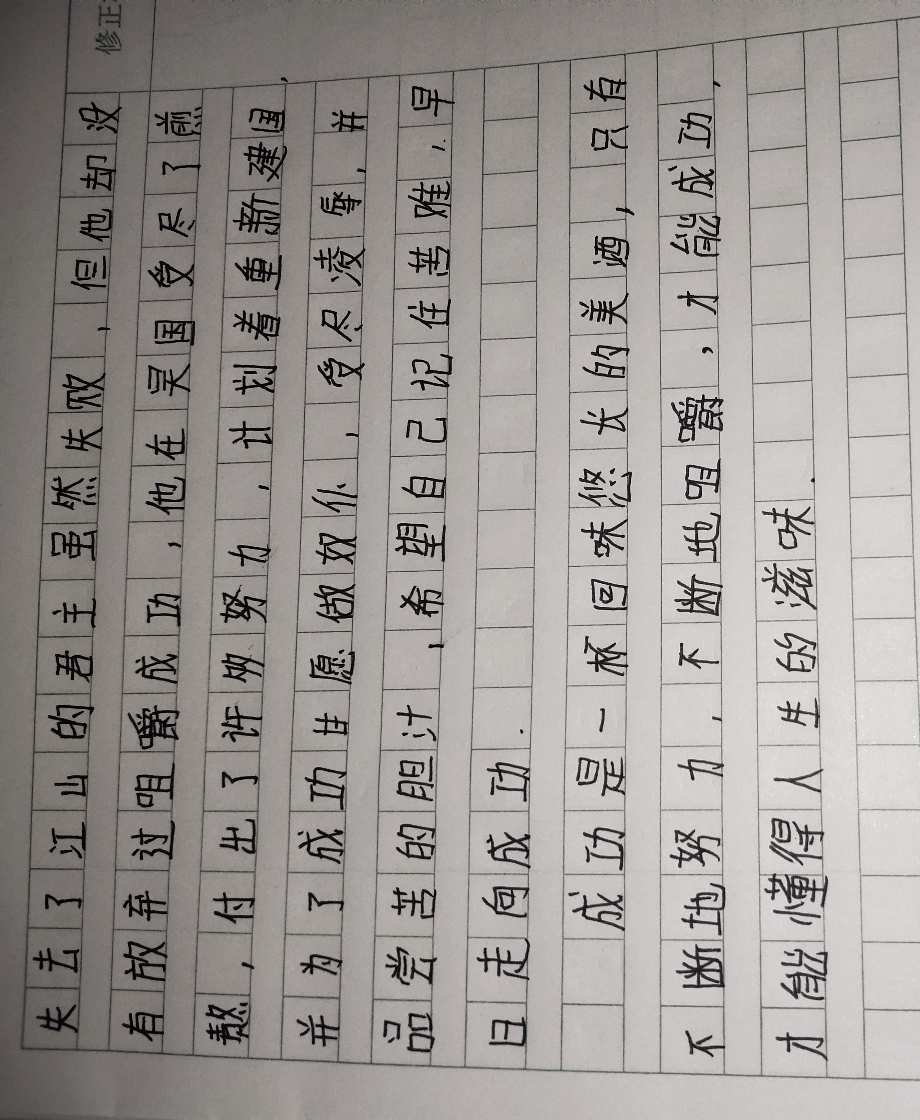 修正
失去了江山的君主虽然失败，但他却没
有放弃过咀嚼成功，他在吴国受尽了煎
熬，付出了许多努力，计划着重新建国，
并为了成功甘愿做奴仆，受尽凌辱，并
品尝苦的胆汁，希望自己记住苦难，早
日走向成功．
成功是一杯回味悠长的美酒，只有
不断地努力，不断地咀嚼，才能成功，
才能懂得人生的滋味．